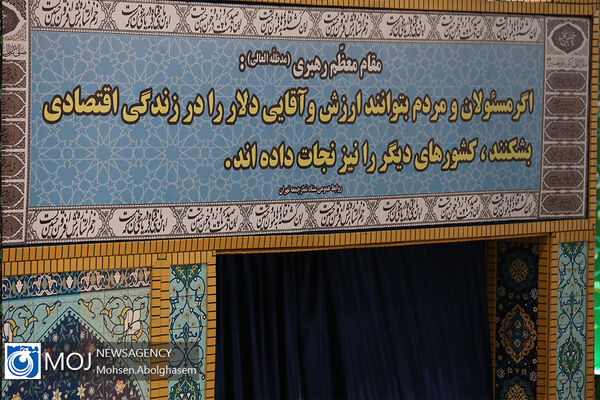 مقام معظّم رهبری (مدظله العالی) :
اگر مسئولان و مردم بتوانند ارزش و آقایی دلار را در زندگی اقتصادی
بشکنند ، کشورهای دیگر را نیز نجات داده اند.
روابط عمومی ستاد نماز جمعه تهران
MOJ
NEWSAGENCY
Mohsen.Abolghasem